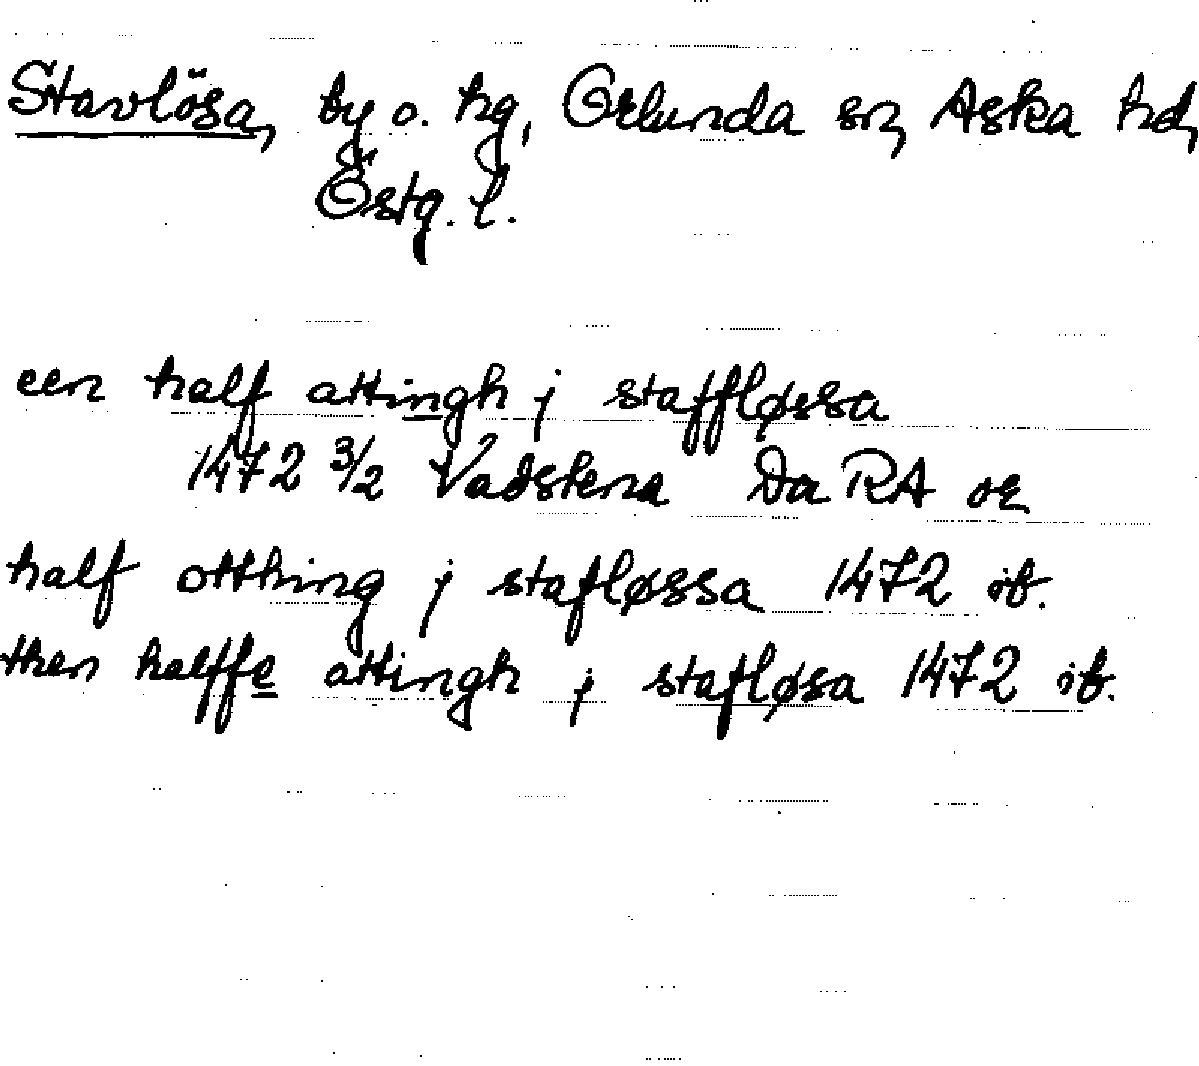 Stavlösa, by o. hg, Orlunda sn, Aska hd,
Östg. l.
een half attingh j staffløssa
1472 3/2 Vadstena Da RA or
half otthing j stafløssa 1472 ib.
then halffe attingh j stafløsa 1472 ib.